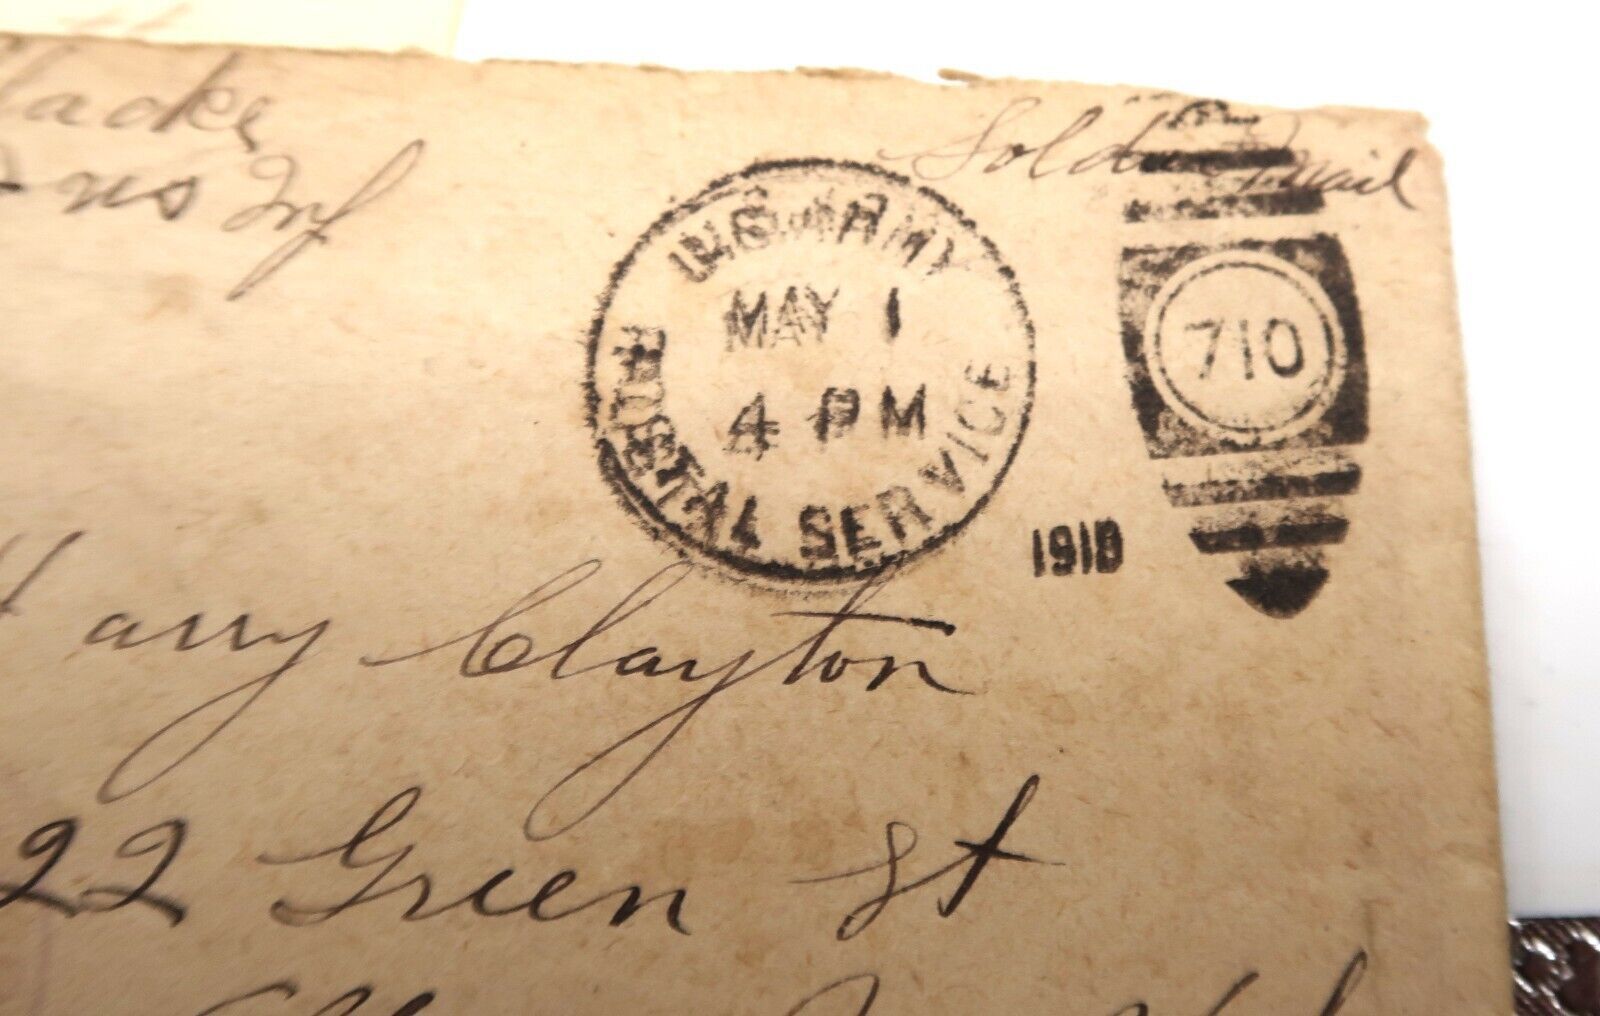 Soldier mail
Inf
U.S. ARMY
MAY 1
4 PM
POSTAL SERVICE
710
1918
Harry Clayton
22 Green St